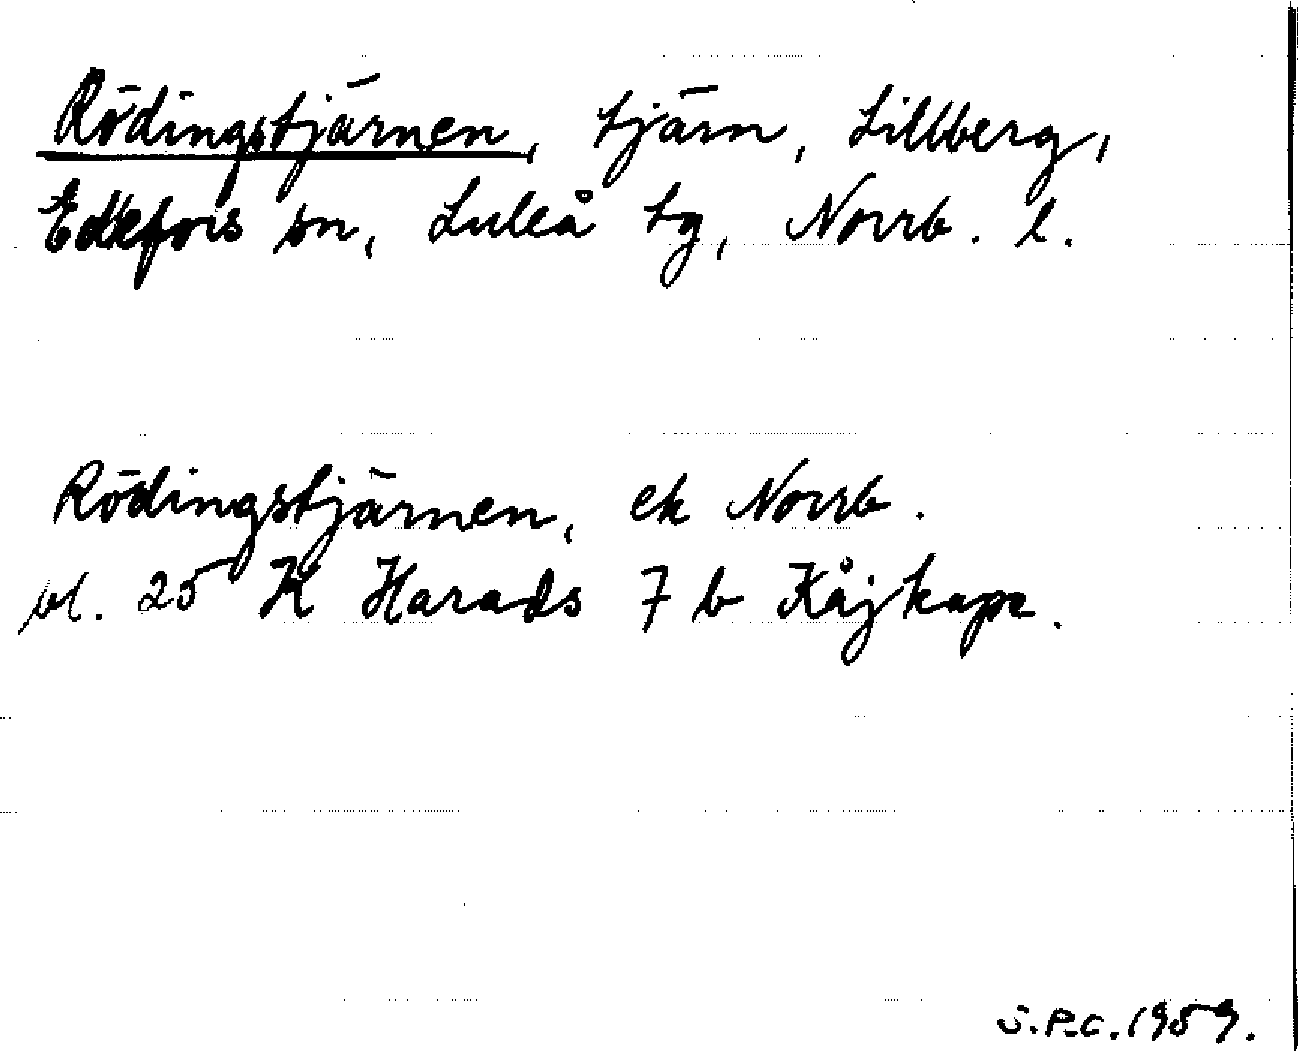 Rödingstjärnen, tjärn, Lillberg,
Edefors sn, Luleå tg, Norrb. l.
Rödingstjärnen, ek Norrb.
bl. 25 K Harads 7 b Kåjkapa.
S.P.C. 1959.